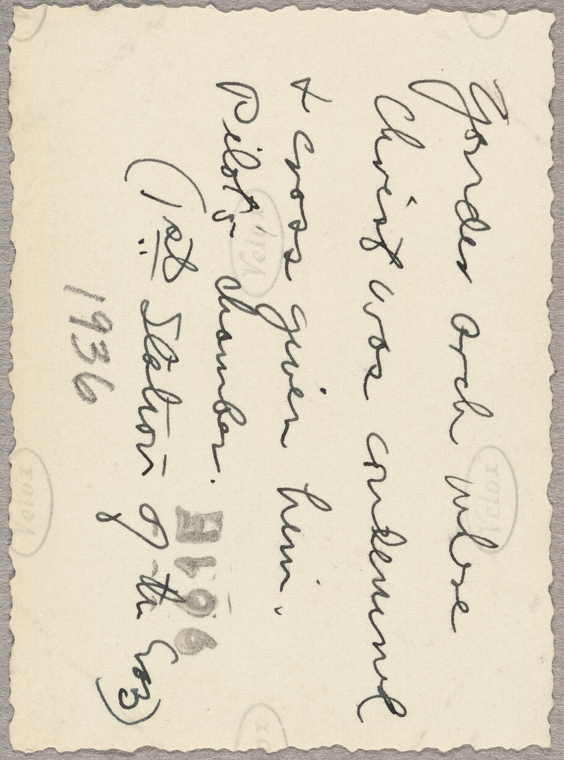 Yonder arch where
Christ was condemned
& cross given him.
Pilot's chamber.
(1st Station of the Cross)
1936
Velox
Velox
Velox